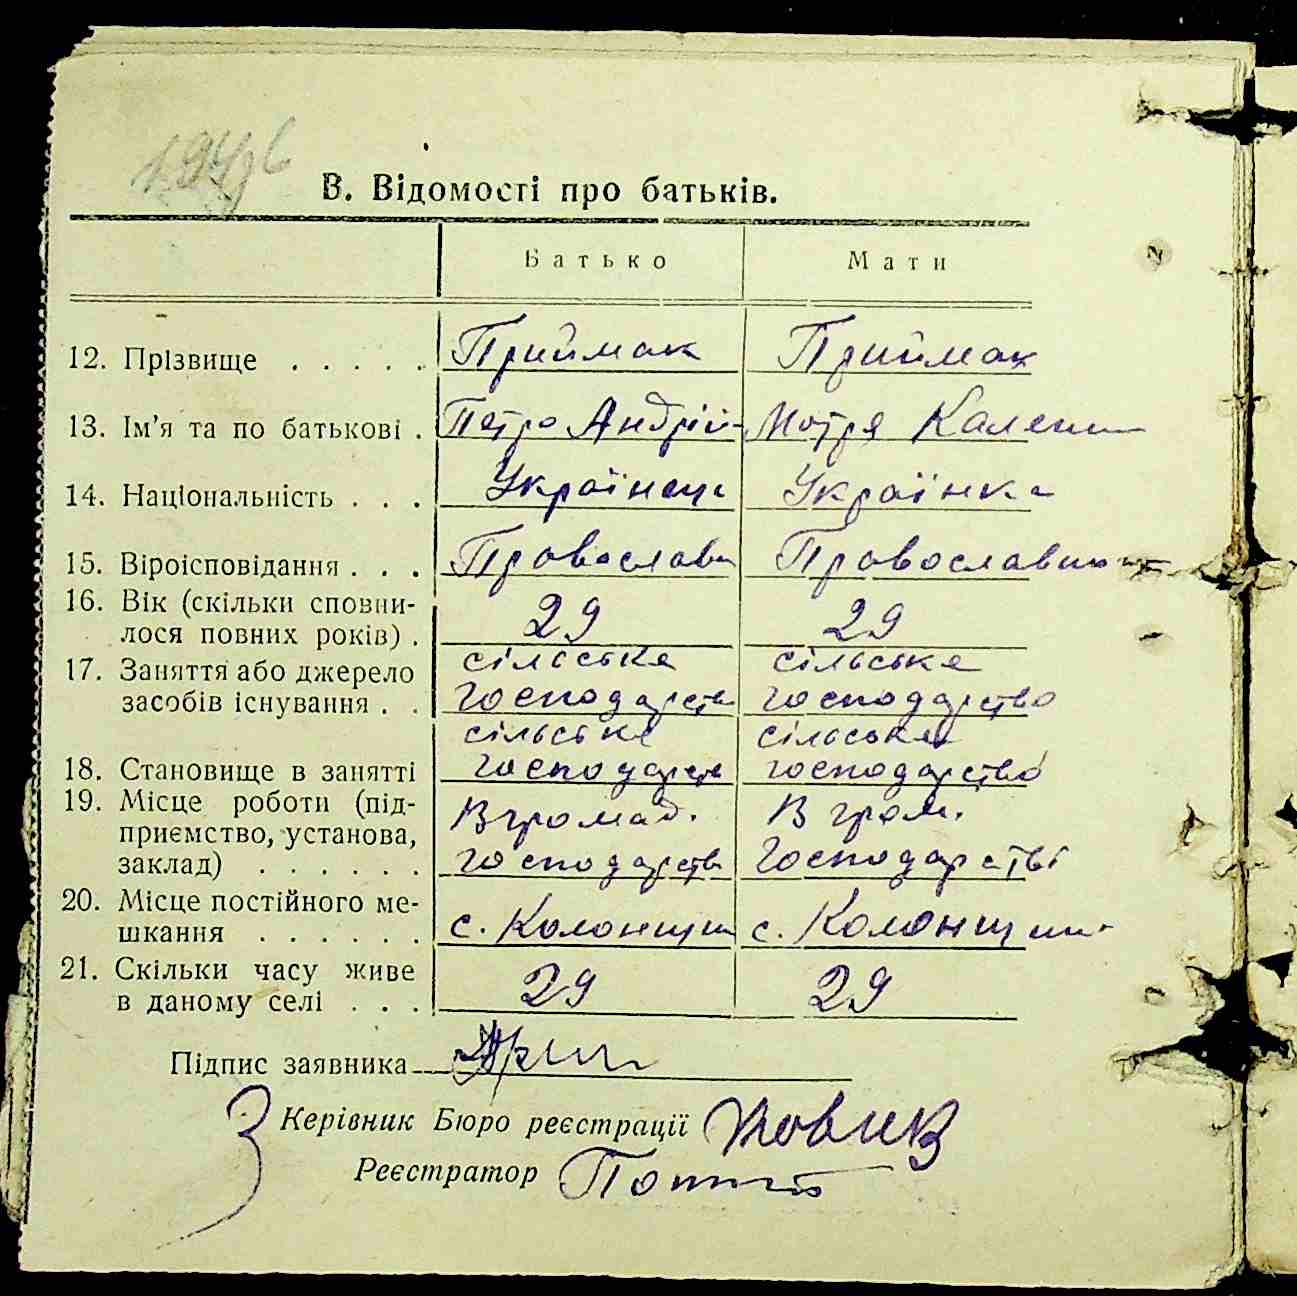 В. Відомості про батьків.
Батько Мати
12. Прізвище . . . . . Приймак Приймак
13. Ім'я та по батькові . Петро Андрій- Мотря Калени
14. Національність . . . Українець Українка
15. Віроісповідання . . . Православн Православна
16. Вік (скільки сповни-
лося повних років) . 29 29
сільське сільське
17. Заняття або джерело
засобів існування . . господарств господарство
сільське сільське
18. Становище в занятті господарств господарство
19. Місце роботи (під-
приємство, установа, В громад. В гром.
заклад) . . . . . . господарств господарстві
20. Місце постійного ме-
шкання . . . . . . с. Колонщин с. Колонщин
21. Скільки часу живе
в даному селі . . . 29 29
Підпис заявника
З Керівник Бюро реєстрації
Реєстратор